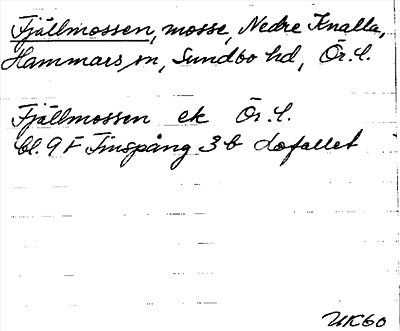 Fjällmossen, mosse, Nedre Knalla,
Hammars sn, Sundbo hd, Ör. l.
Fjällmossen ek Ör. l.
bl. 9 F Finspång 3 b Lofallet
UK60